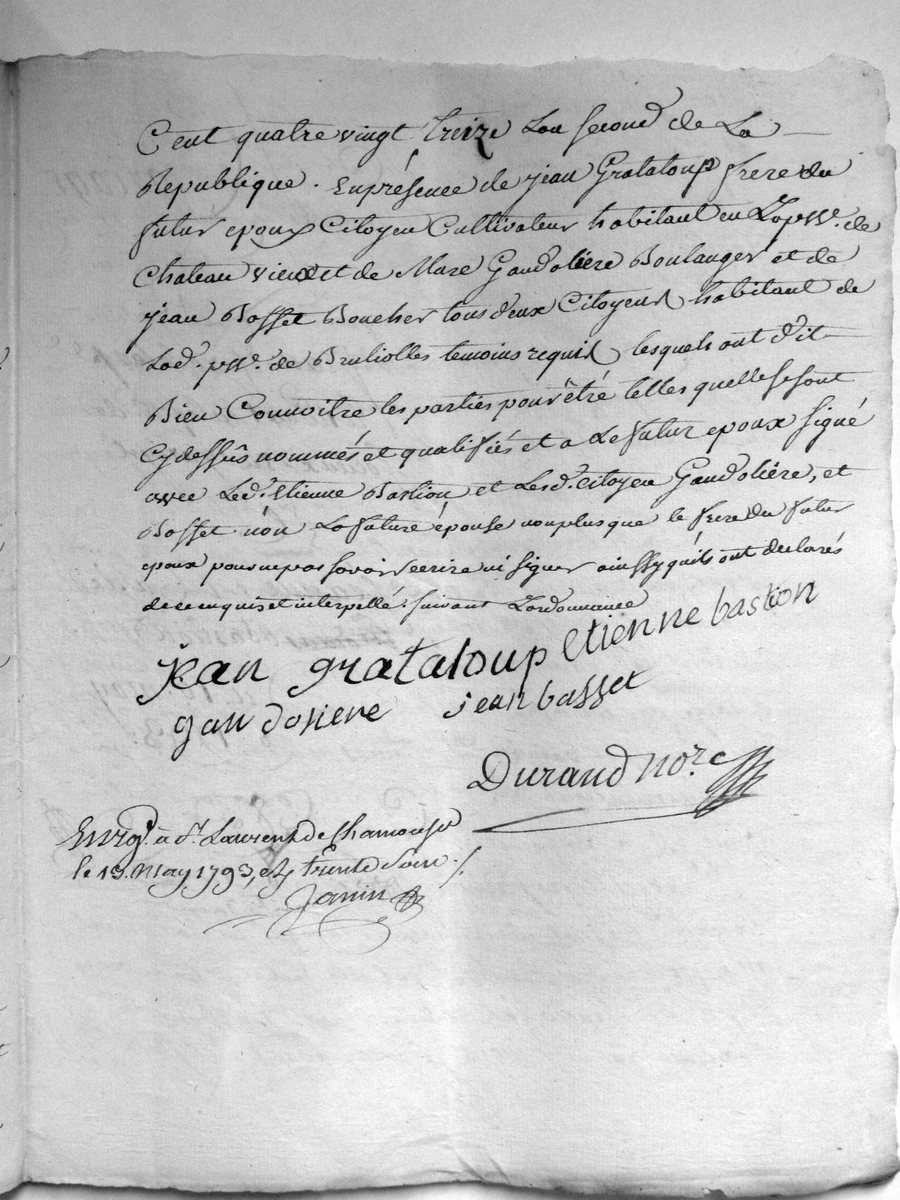 Cent quatre vingt treize Lan second de La
Republique. En présence de jean Grataloup frere du
futur epoux Citoyen Cultivateur habitant en La psse. de
Chateau vieux et de Marc Gandoliere Boulanger et de
jean Basset Boucher tous deux Citoyens habitant de
Lad. psse. de Brulliolles temoins requis lesquels ont dit
Bien Connoitre les parties pour être telles quelle se sont
Cy dessus nommés et qualifiés et a Le futur epoux signé
avec Led. Etienne Bastion et Lesd. Citoyen Gandoliére, et
Basset non La future épouse non plus que le frere du futur
epoux pour ne pas savoir ecrire ni signer ainssy quils ont declarés
de ce enquis et interpellé suivant Lordonnance
jean grataloup etienne bastion
gandoliere jean basset
Durand nore
Enrgt. à St. Laurent de Chamousset
le 13. may 1793, trente sous
Janin